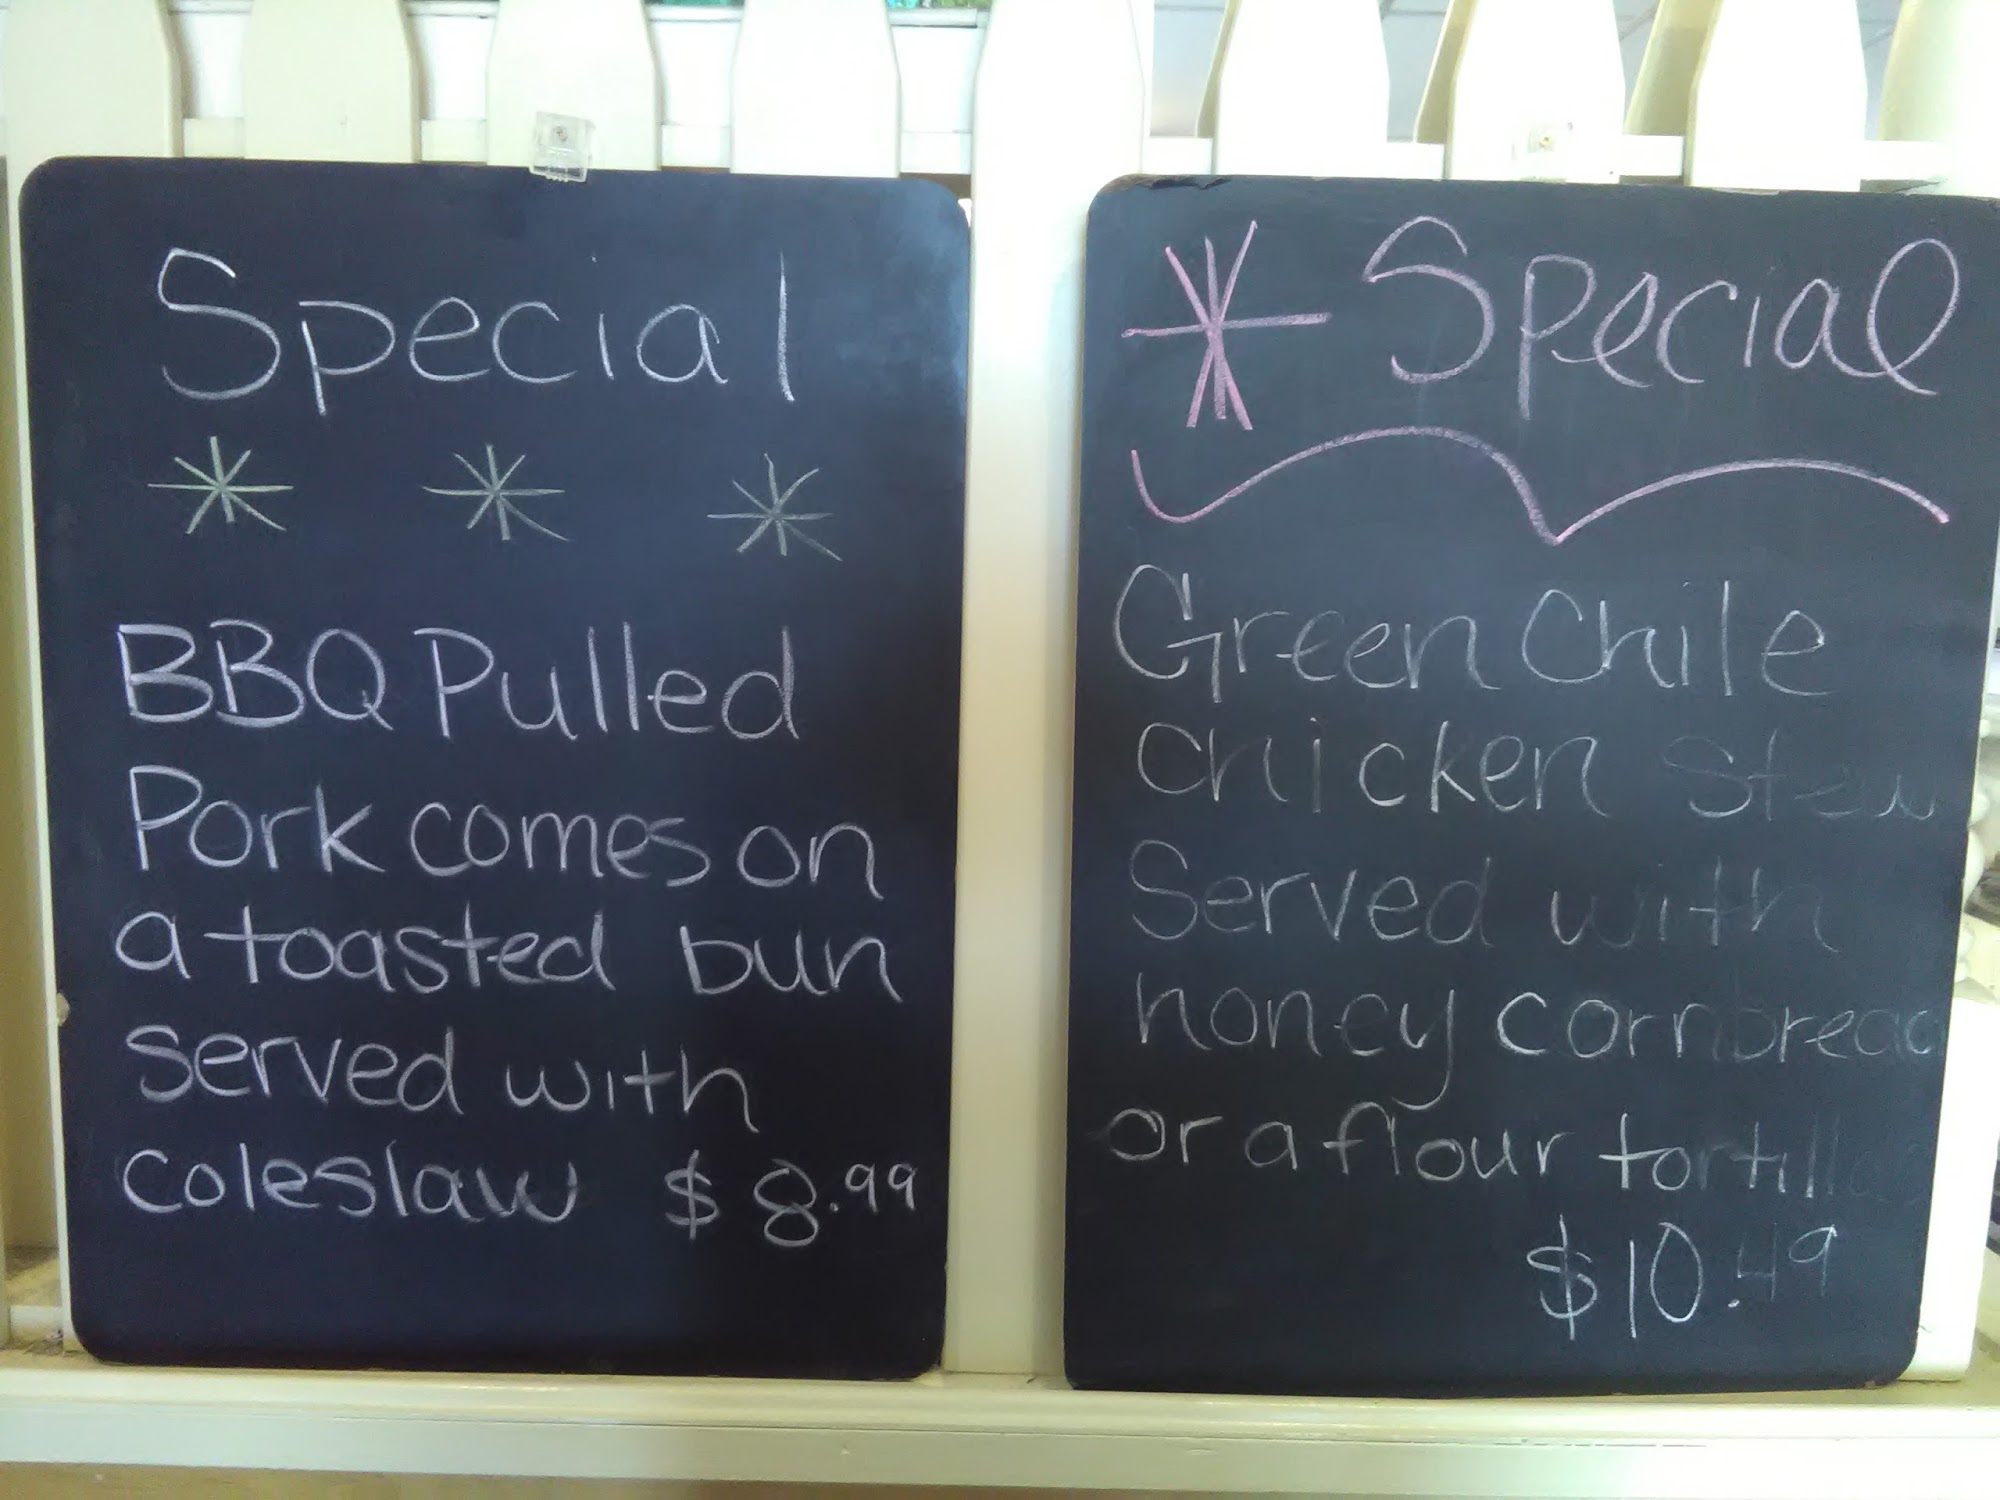 Special
* * *
BBQ Pulled
Pork comes on
a toasted bun
served with
coleslaw $8.99
* Special
Green Chile
Chicken Stew
Served with
honey cornbread
or a flour tortilla
$10.49